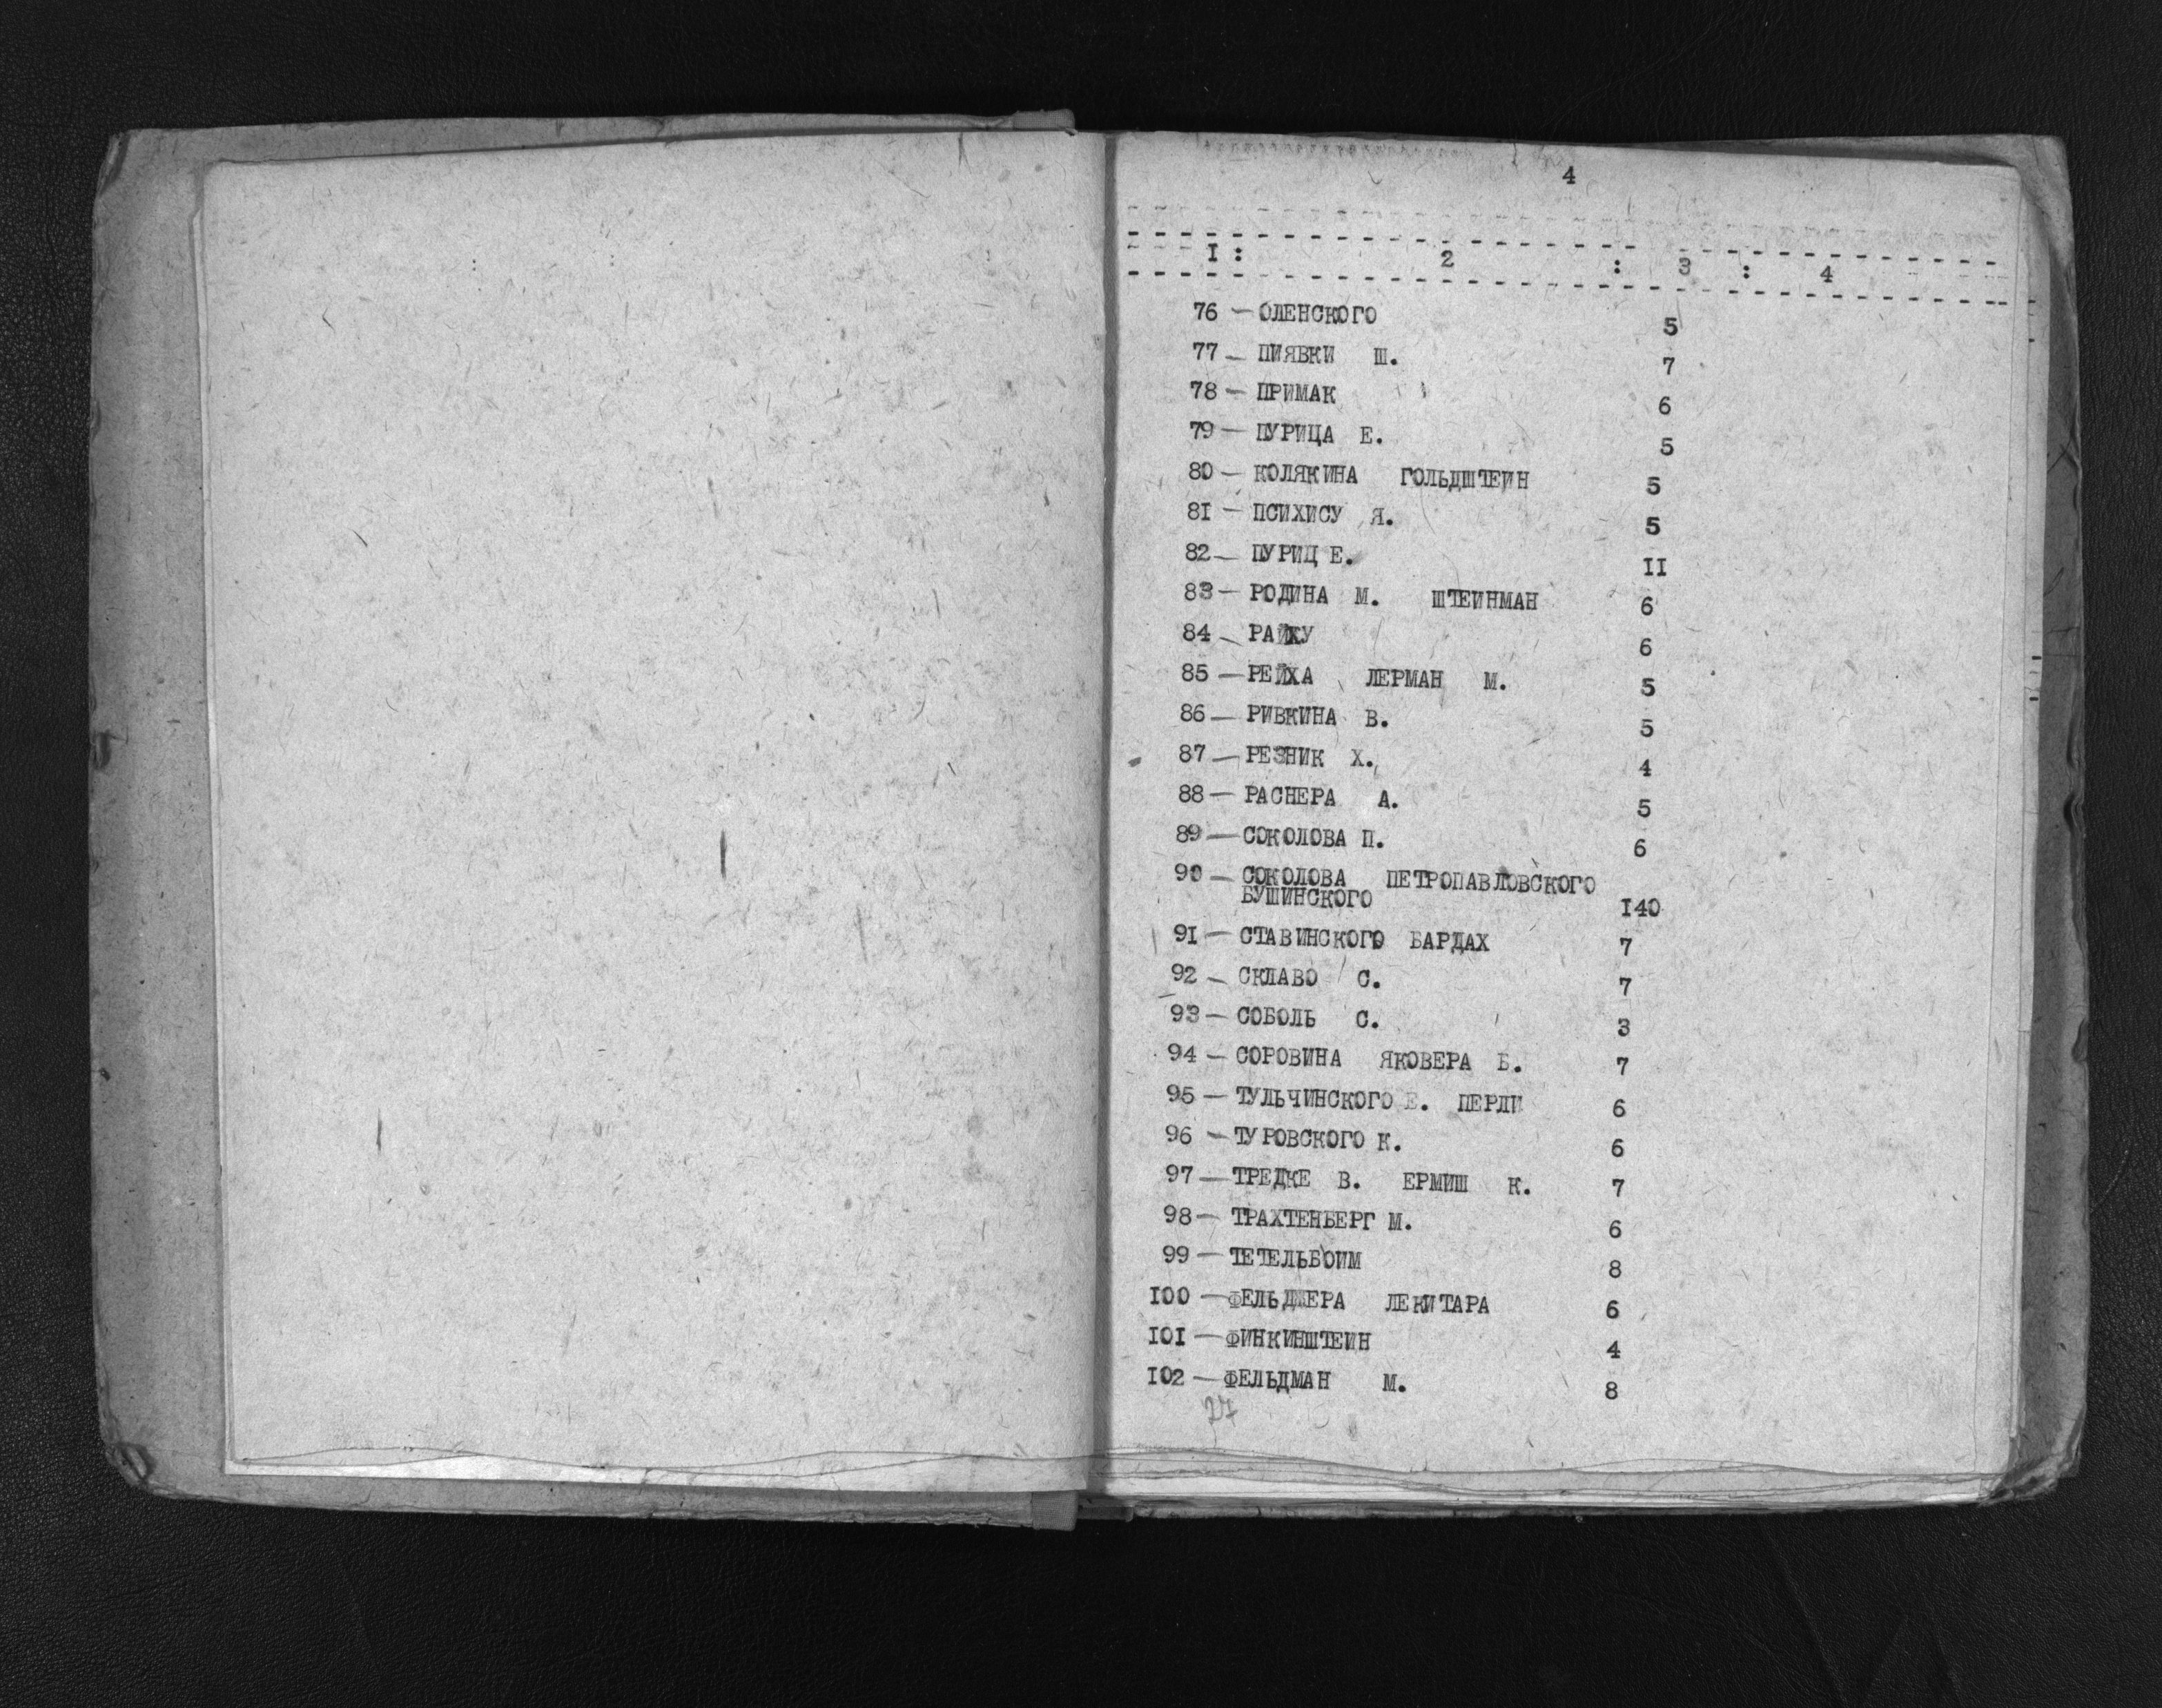 4
I : 2 : 3 : 4
76 — ОЛЕНСКОГО 5
77 — ПИЯВКИ Ш. 7
78 — ПРИМАК 6
79 — ПУРИЦА Е. 5
80 — КОЛЯКИНА ГОЛЬДШТЕИН 5
81 — ПСИХИСУ Я. 5
82 — ПУРИЦ Е. II
83 — РОДИНА М. ШТЕИНМАН 6
84 — 6
85 — РЕЙХА ЛЕРМАН М. 5
86 — РИВКИНА В. 5
87 — РЕЗНИК Х. 4
88 — РАСНЕРА А. 5
89 — СОКОЛОВА П. 6
90 — СОКОЛОВА ПЕТРОПАВЛОВСКОГО
БУШИНСКОГО I40
91 — СТАВИНСКОГО БАРДАХ 7
92 — СКЛАВО С. 7
93 — СОБОЛЬ С. 3
94 — СОРОВИНА ЯКОВЕРА Б. 7
95 — ТУЛЬЧИНСКОГО Е. ПЕРЛИ 6
96 — ТУРОВСКОГО К. 6
97 — ТРЕДКЕ В. ЕРМИШ К. 7
98 — ТРАХТЕНБЕРГ М. 6
99 — ТЕТЕЛЬБОИМ 8
I00 — ФЕЛЬДМЕРА ЛЕКИТАРА 6
I0I — ФИНКИНШТЕИН 4
I02 — ФЕЛЬДМАН М. 8
27